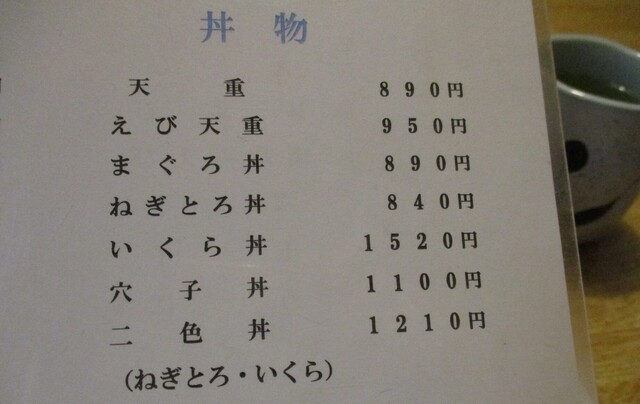 丼物
天重 890円
えび天重 950円
まぐろ丼 890円
ねぎとろ丼 840円
いくら丼 1520円
穴子丼 1100円
二色丼 1210円
(ねぎとろ・いくら)